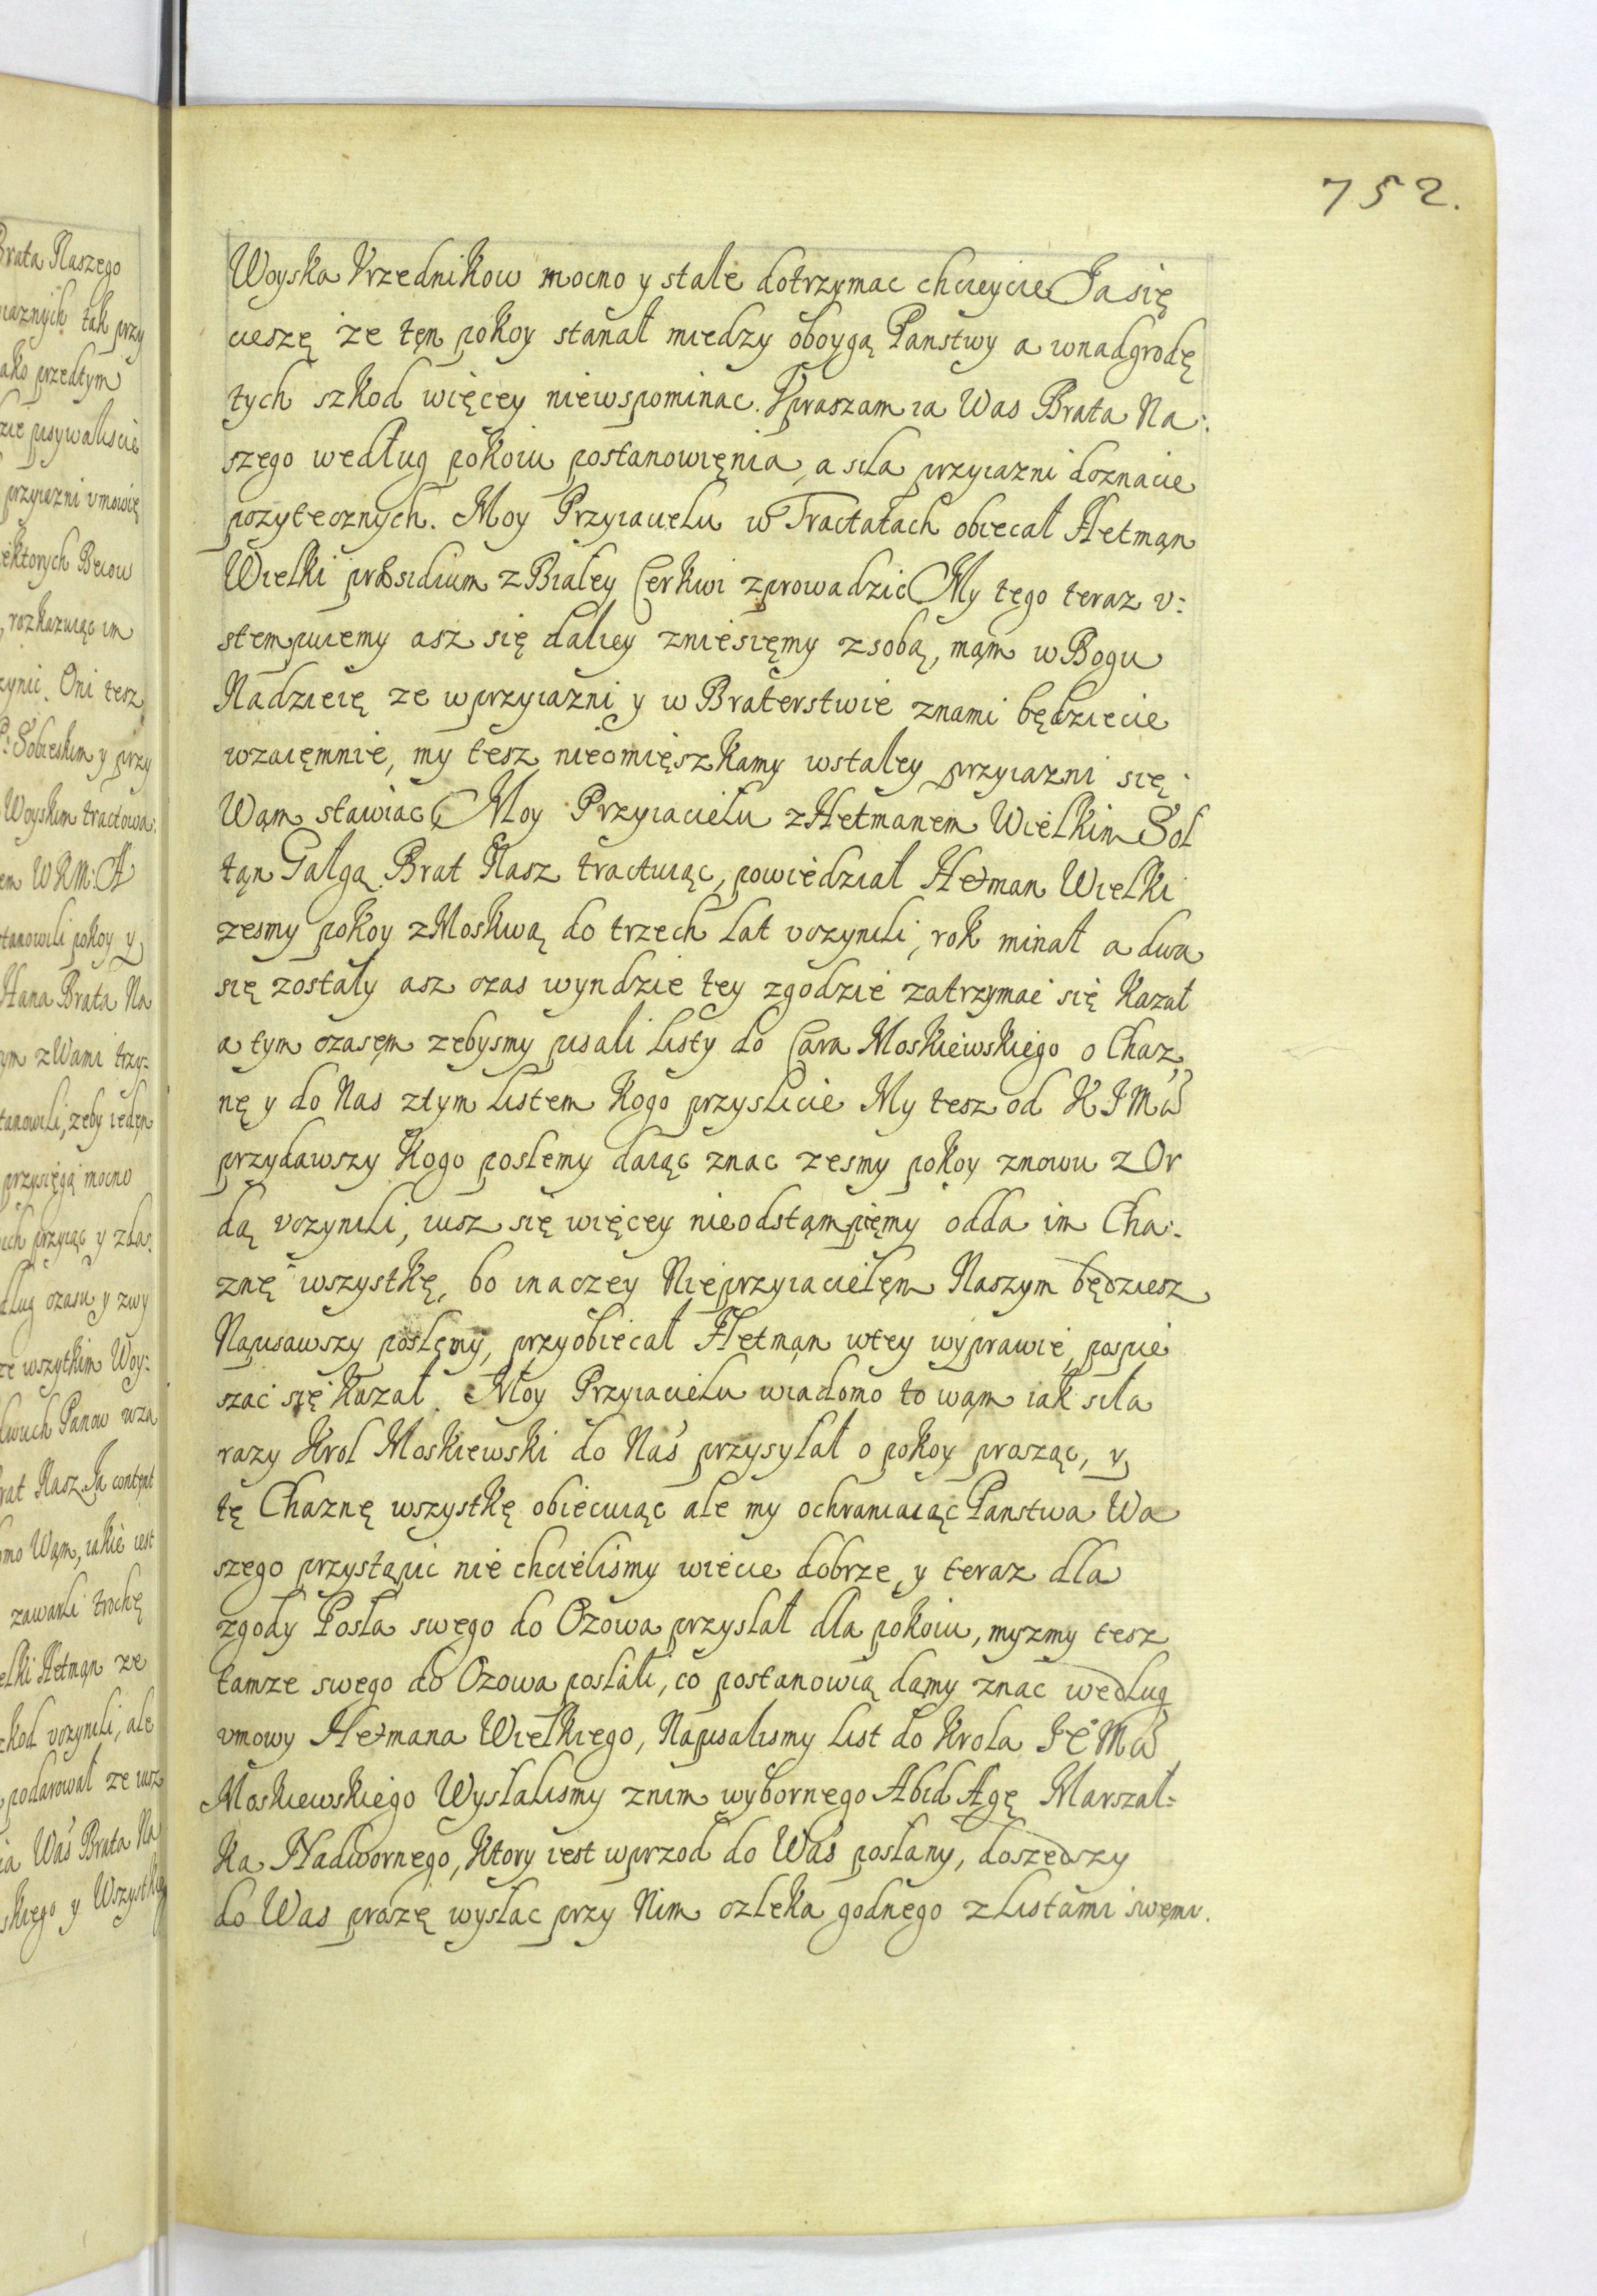 752.
Woyska Vrzednikow mocno y stale dotrzymac chcieycie Ja się
cieszę że tęn pokoy stanał miedzy oboygą Panstwy a wnadgrodę
tych szkod więcey niewspominac. Vpraszam ia Was Brata Na:
szego według pokoiu postanowięnia, a siła przyiazni doznacie
pozytecznych. Moy Przyiacielu w Tractatach obiecał Hetmąn
Wielki præsidium z Białey Cerkwi zprowadzic My tego teraz v:
stempuiemy asz się daliey zniesięmy z sobą, mąm w Bogu
Nadzieię ze wprzyiazni y w Braterstwie znami będziecie
wzaięmnie, my tesz nieomięszkamy wstałey przyiazni się
Wąm stawiac Moy Przyiacielu z Hetmanem Wielkim Soł
tąn Gałgą Brat Nasz tractuiąc, powiedział Hetman Wielki
zesmy pokoy z Moskwą do trzech lat vczynili, rok minał a dwa
się zostały asz czas wyndzie tey zgodzie zatrzymać się kazał
a tym czasęm zebysmy pisali listy do Cara Moskiewskiego o Chaz,
nę y do Nas ztym listem kogo przyslicie My tesz od K J Mci
przydawszy kogo poslemy daiąc znac zesmy pokoy znowu z Or
dą vczynili, iusz się więcey nieodstąmpięmy odda im Cha:
znę wszystkę, bo inaczey Nieprzyiacielęm Naszym będziesz
Napisawszy poslęmy, przyobiecał Hetmąn wtey wyprawie pospie
szać się kazał. Moy Przyiacielu wiadomo to wąm iak siła
razy Krol Moskiewski do Nas przysyłał o pokoy prosząc, y
tę Chaznę wszystkę obiecuiąc ale my ochraniaiąc Panstwa Wa
szego przystąpic nie chcielismy wiecie dobrze, y teraz dla
zgody Posła swego do Ozowa przysłał dla pokoiu, myzmy tesz
tamze swego do Ozowa posłali, co postanowią damy znac według
vmowy Hetmana Wielkiego, Napisalismy list do Krola Je Mci
Moskiewskiego Wysłalismy znim wybornego Abid Agę Marszał=
ka Nadwornego, ktory iest wprzod do Was posłany, doszedszy
do Was proszę wysłac przy Nim człeka godnego z listami swęmi.
Brata Naszego
tak przy
ako przedtym
przyiazni vmowię
ektorych Beiow
rozkazuiąc im
Oni tesz
P: Sobieskim y przy
Woyskim tractowa:
em WKM:
tanowili pokoy y
Hana Brata Na
ym z Wami trzy=
tanowili, zeby iedęn
przysięgą mocno
ich przyiąc y zda:
dług czasu y zwy
ze wszytkim Woy:
dwuch Panow wza
rat Nasz. Ja contęnt
omo Wąm, iakie iest
zawarli trochę
elki Hetmąn ze
zkod vczynili, ale
podarował ze iusz
ia Was Brata Na
skiego y Wszystkie